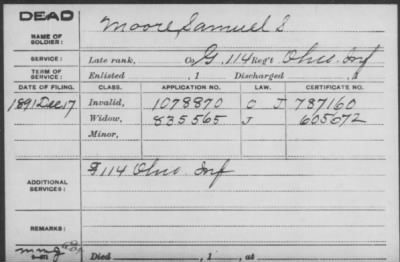 DEAD
NAME OF SOLDIER: Moore, Samuel S
SERVICE: Late rank, Co G, 114 Reg't Ohio Inf
TERM OF SERVICE: Enlisted , 1 Discharged , 1
DATE OF FILING. CLASS. APPLICATION NO. LAW. CERTIFICATE NO.
1891 Dec 17 Invalid, 1078870 C J 787160
Widow, 835565 J 605672
Minor,
ADDITIONAL SERVICES: 114 Ohio Inf
REMARKS:
Died , 1 , at